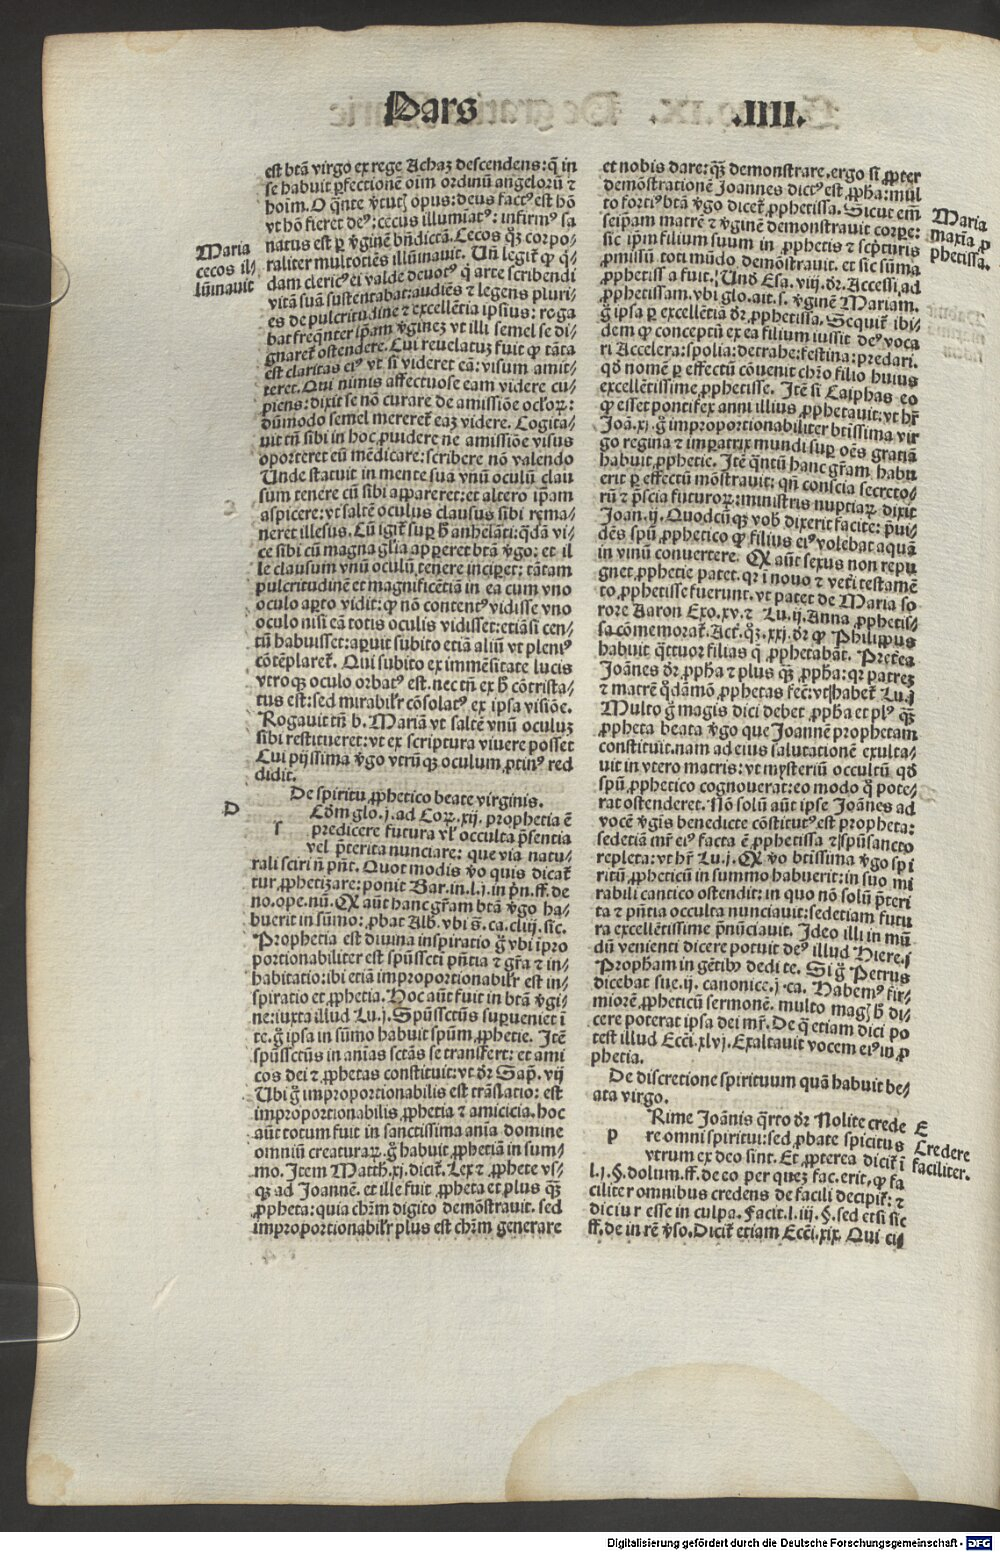 Pars .IIII.
est btā virgo ex rege Achaz descendens: q̄ in
se habuit p̄fectionē oīm ordinū angelorū ⁊
hoīm. O q̄nte v̄tutꝭ opus: deus factꝰ est hō
vt hō fieret deꝰ: cecus illumiatꝰ: infirmꝰ sa
natus est ꝑ v̄ginē bn̄dictā. Cecos qͦꝫ corpo⸗
raliter multotiēs illūinavit. Uñ legit̄ ꝙ q̄⸗
dam clericꝰ ei valde devotꝰ q̄ arte scribendi
vitā suā sustentabat: audiēs ⁊ legens pluri⸗
es de pulcritudine ⁊ excellētia ipsius: roga
bat freq̄nter ip̄am v̄gineꝫ vt illi semel se di⸗
gnaret̄ ostendere. Cui revelatuꝫ fuit ꝙ tāta
est claritas eiꝰ vt si videret eā: visum amit⸗
teret. Qui nimis affectuose eam videre cu⸗
piens: dixit se nō curare de amissiōe oc̄loꝝ:
dūmodo semel mereret̄ eaꝫ videre. Cogita⸗
uit tn̄ sibi in hoc ꝓuidere ne amissiōe visus
oporteret eū mēdicare: scribere nō valendo
Unde statuit in mente sua vnū oculū clau
sum tenere cū sibi appareret: et altero ip̄am
aspicere: vt saltē oculus clausus sibi rema⸗
neret illesus. Cū igit̄ suꝑ h̄ anhelāti: q̄dā vi⸗
ce sibi cū magna gl̄ia apꝑeret btā v̄go: et il
le clausum vnū oculū tenere inciꝑet: tātam
pulcritudinē et magnificētiā in ea cum vno
oculo aꝑto vidit: ꝙ nō contentꝰ vidisse vno
oculo nisi eā totis oculis vidisset: etiā si cen⸗
tū habuisset: aꝑuit subito etiā aliū vt pleniꝰ
cōtēplaret̄. Qui subito ex immēsitate lucis
vtroqꝫ oculo orbatꝰ est. nec tn̄ ex h̄ cōtrista⸗
tus est: sed mirabil̄r cōsolatꝰ ex ipsa visiōe.
Rogauit tn̄ b. Mariā vt saltē vnū oculuꝫ
sibi restitueret: vt ex scriptura vivere posset
Cui pijssima v̄go vtrūqꝫ oculum ꝓtinꝰ red
didit.
Maria
cecos il⸗
lūinavit
De spiritu ꝓphetico beate virginis.
D
s Cōm glo. j. ad Coꝝ. xij. prophetia ē
predicere futura vl̓ occulta p̄sentia
vel p̄terita nunciare: que via natu⸗
rali sciri n̄ pn̄t. Quot modis v̄o quis dicat̄
tur ꝓphetizare: ponit Bar. in. l. j. in p̄n. ff. de
no. ope. nū. Qꝫ aūt hanc gr̄am btā v̄go ha⸗
buerit in sūmo: ꝓbat Alb. vbi s̄. ca. cliij. sic.
Prophetia est divina inspiratio ḡ vbi ipro
portionabiliter est spūssct̄i pn̄tia ⁊ gr̄a ⁊ in⸗
habitatio: ibi etiā improportionabil̄r est in⸗
spiratio et ꝓphetia. Hoc aūt fuit in btā v̄gi⸗
ne: iuxta illud Lu. j. Spūssct̄us suꝑueniet ī
te. ḡ ipsa in sūmo habuit spūm ꝓphetie. Itē
spūssct̄us in aīas sct̄as se transfert: et ami
cos dei ⁊ ꝓphetas constituit: vt dr̄ Sap̄. vij
Ubi ḡ improportionabilis est trāslatio: est
improportionabilis ꝓphetia ⁊ amicicia. hoc
aūt totum fuit in sanctissima aīa domine
omniū creaturaꝝ. ḡ habuit ꝓphetiā in sum⸗
mo. Item Matth. xj. dicit̄. Lex ⁊ ꝓphete vs⸗
qꝫ ad Joannē. et ille fuit ꝓpheta et plus qꝫ̄
ꝓpheta: quia chr̄m digito demōstravit. sed
improportionabil̄r plus est chr̄m generare
et nobis dare: qꝫ̄ demonstrare. ergo si ꝓpter
demōstrationē Joannes dictꝰ est ꝓpha: mul
to fortiꝰ btā v̄go dicet̄ ꝓphetissa. Sicut eīm
seip̄am matrē ⁊ v̄ginē demonstravit corꝑe:
sic ip̄m filium suum in ꝓphetis ⁊ scpturis
ꝓmissū toti mūdo demōstravit. et sic sūma
ꝓphetissa fuit. Und̄ Esa. viij. dr̄. Accessi ad
ꝓphetissam. vbi glo. ait. s. v̄ginē Mariam.
ḡ ipsa ꝑ excellētiā dr̄ ꝓphetissa. Sequit̄ ibi⸗
dem ꝙ conceptū ex ea filium iussit deꝰ voca
ri Accelera: spolia: detrahe: festina: predari.
qd̄ nomē ꝑ effectū cōuenit chr̄o filio huius
excellētissime ꝓphetisse. Itē si Caiphas eo
ꝙ esset pontifex anni illius ꝓphetauit: vt hr̄
Joā. xj. ḡ improportionabiliter btissima vir
go regina ⁊ imꝑatrix mundi suꝑ oēs gratiā
habuit ꝓphetie. Itē q̄ntū hanc gr̄am habu
erit ꝑ effectū mōstrauit: qn̄ conscia secreto⸗
rū ⁊ p̄scia futuroꝝ: ministris nuptiaꝝ dixit
Joan. ij. Quodcūqꝫ vob̄ dixerit facite: p̄ui⸗
dēs spū ꝓphetico ꝙ filius eiꝰ volebat aquā
in vinū convertere. Qꝫ aūt sexus non repu
gnet ꝓphetie patet. qꝛ ī novo ⁊ vet̓i testamē
to ꝓphetisse fuerunt. vt patet de Maria so
rore Aaron Exo. xv. ⁊ Lu. ij. Anna ꝓphetis⸗
sa cōmemorat̄. Act̄. qͦꝫ. xxj. dr̄ ꝙ Philippus
habuit q̄ttuor filias q̄ ꝓphetabāt. Pret̓ea
Joānes dr̄ ꝓpha ⁊ plus qꝫ̄ ꝓpha: qꝛ patreꝫ
⁊ matrē qͦdāmō ꝓphetas fecit: vt habet̄ Lu. j
Multo ḡ magis dici debet ꝓpha et plꝰ qꝫ̄
ꝓpheta beata v̄go que Joannē prophetam
constituit. nam ad eius salutationē exulta⸗
uit in vtero matris: vt mysteriū occultū qd̄
spū ꝓphetico cognouerat: eo modo q̄ pote⸗
rat ostenderet. Nō solū aūt ipse Joānes ad
vocē v̄gīs benedicte cōstitutꝰ est propheta:
sed etiā mr̄ eiꝰ facta ē ꝓphetissa ⁊ spūsancto
repleta: vt hr̄ Lu. j. Qꝫ v̄o btissima v̄go spi
ritū ꝓpheticū in summo habuerit: in suo mi
rabili cantico ostendit: in quo nō solū p̄teri
ta ⁊ pn̄tia occulta nunciauit: sed etiam futu
ra excellētissime p̄nūciauit. Ideo illi in mū
dū venienti dicere potuit deꝰ illud Hiere. j
Propham in gētibꝰ dedi te. Si ḡ Petrus
dicebat sue. ij. canonice. j. ca. Habemꝰ fir⸗
miorē ꝓpheticū sermonē. multo magꝭ h̄ di⸗
cere poterat ipsa dei mr̄. De q̄ etiam dici po
test illud Ecci. xlvj. Exaltauit vocem eiꝰ in ꝓ
phetia.
Maria
maxīa ꝓ
phetissa.
De discretione spirituum quā habuit be⸗
ata virgo.
p Rime Joānis q̄rto dr̄ Nolite crede
re omni spiritui: sed ꝓbate spicitus
vtrum ex deo sint. Et ꝓpterea dicit̄ ī
l. j. §. dolum. ff. de eo per quez fac. erit. ꝙ fa
ciliter omnibus credens de facili decipit̄: ⁊
dicitur esse in culpa. Facit. l. iij. §. sed etsi sic
ff. de in rē v̄so. Dicit̄ etiam Ecci. xix. Qui ci⸗
E
Credere
faciliter.
Digitalisierung gefördert durch die Deutsche Forschungsgemeinschaft - DFG